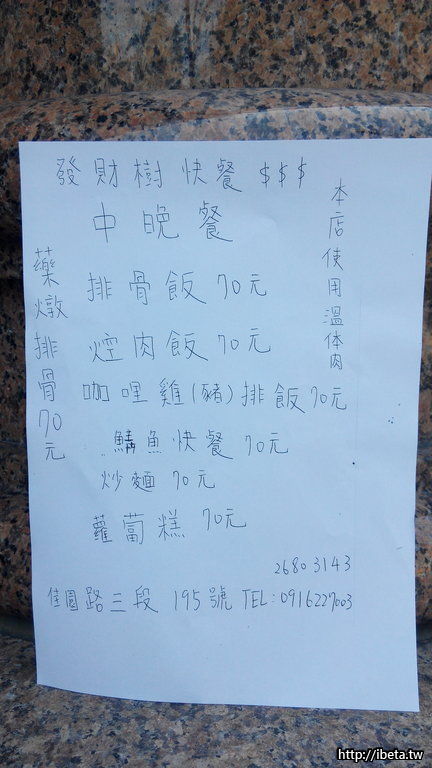 發財樹快餐 $$$
中晚餐
本店使用溫体肉
排骨飯70元
焢肉飯70元
咖哩雞(豬)排飯70元
鯖魚快餐 70元
炒麵 70元
蘿蔔糕 70元
藥燉排骨70元
26803143
佳園路三段 195號 TEL:0916227003
http://ibeta.tw